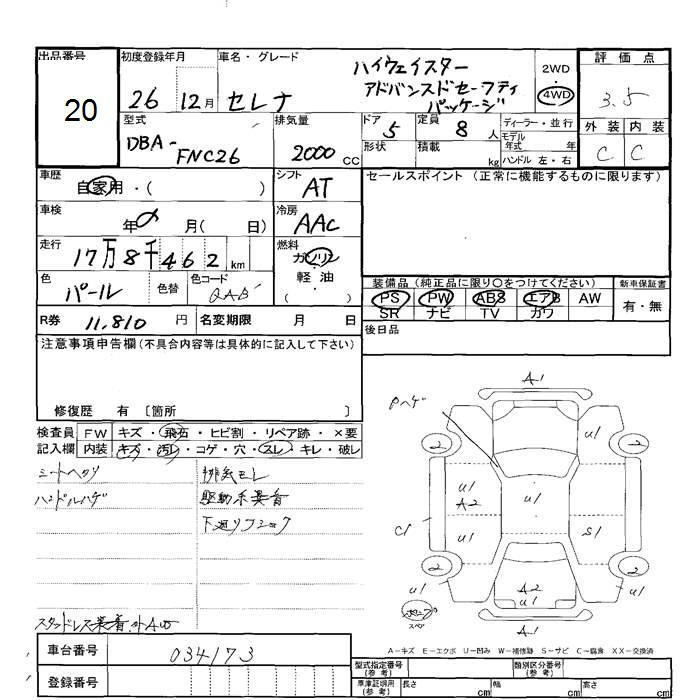 出品番号 初度登録年月 車名・グレード 評価点
20 26 12月 セレナ ハイウェイスター アドバンスドセーフティ パッケージ 2WD 4WD 3.5
型式 排気量 ドア 定員 ディーラー・並行 外装 内装
DBA-FNC26 2000 CC 5 8人 モデル年式 年 C C
形状 積載 kg ハンドル 左・右
車歴 自家用・( ) シフト AT
セールスポイント (正常に機能するものに限ります)
車検 年 月( 日) 冷房 AAC
走行 17万8千462 km 燃料 ガソリン・軽油 ( )
色 パール 色替 色コード QAB
装備品 (純正品に限り○をつけてください) 新車保証書
PS PW ABS エアB AW 有・無
SR ナビ TV カワ
R券 11,810 円 名変期限 月 日
後日品
注意事項申告欄(不具合内容等は具体的に記入して下さい)
修復歴 有 〔箇所 〕
検査員 FW キズ・飛石・ヒビ割・リペア跡・×要
記入欄 内装 キズ・汚レ・コゲ・穴・スレ・キレ・破レ
シートヘタリ 排気モレ
ハンドルハゲ 駆動系異音
下廻りフック
スタッドレス装着
A1
Pハゲ
U1
2 2
U1
A2 U1
C1 U1 S1
2 2
U1 A2 U1 U1
スペア
A1
A-キズ E-エクボ U-凹み W-補修跡 S-サビ C-腐食 XX-交換済
車台番号 034173
登録番号
型式指定番号 (参考) 類別区分番号 (参考)
車庫証明用 (参考) 長さ cm 幅 cm 高さ cm